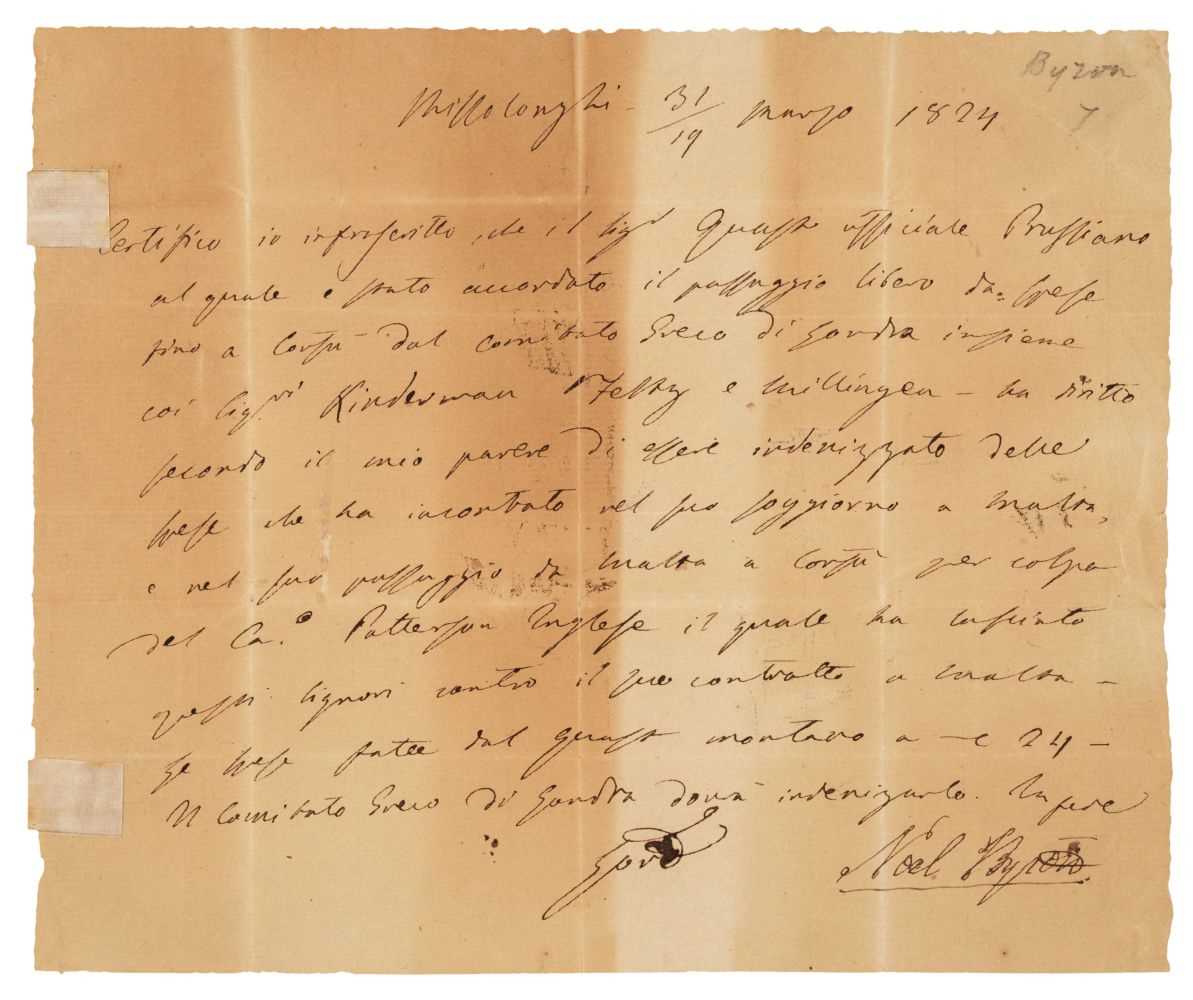 Byron
7
Missolonghi - 31/19 Marzo 1824
Certifico io infrascritto, che il Sigr Quast ufficiale Prussiano
al quale e stato accordato il passaggio libero da spese
fino a Corfu dal comitato Greco di Londra insieme
coi Sigri Kinderman e Millingen - ha diritto
secondo il mio parere di essere indenizzato delle
spese che ha incontrato nel suo soggiorno a Malta,
e nel suo passaggio da Malta a Corfu per colpa
del Cao Patterson Inglese il quale ha lasciato
questi Signori contro il suo contratto a Malta -
Le spese fatte dal Quast montano a 24 -
Il Comitato Greco di Londra dovrà indenizarlo. In fede
Lord Noel Byron